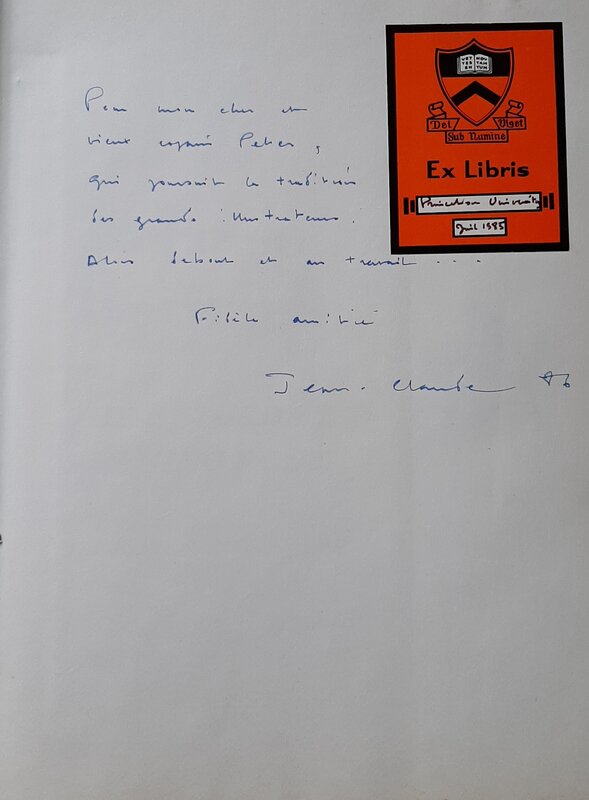 Pour mon cher et
vieux copain Peter,
qui poursuit la tradition
des grands illustrateurs.
Alors debout et au travail ....
Fidèle amitié
Jean-Claude 86
VET NOV
TES TAM
EN TUM
Dei Viget
Sub Numine
Ex Libris
Princeton University
Juil 1985